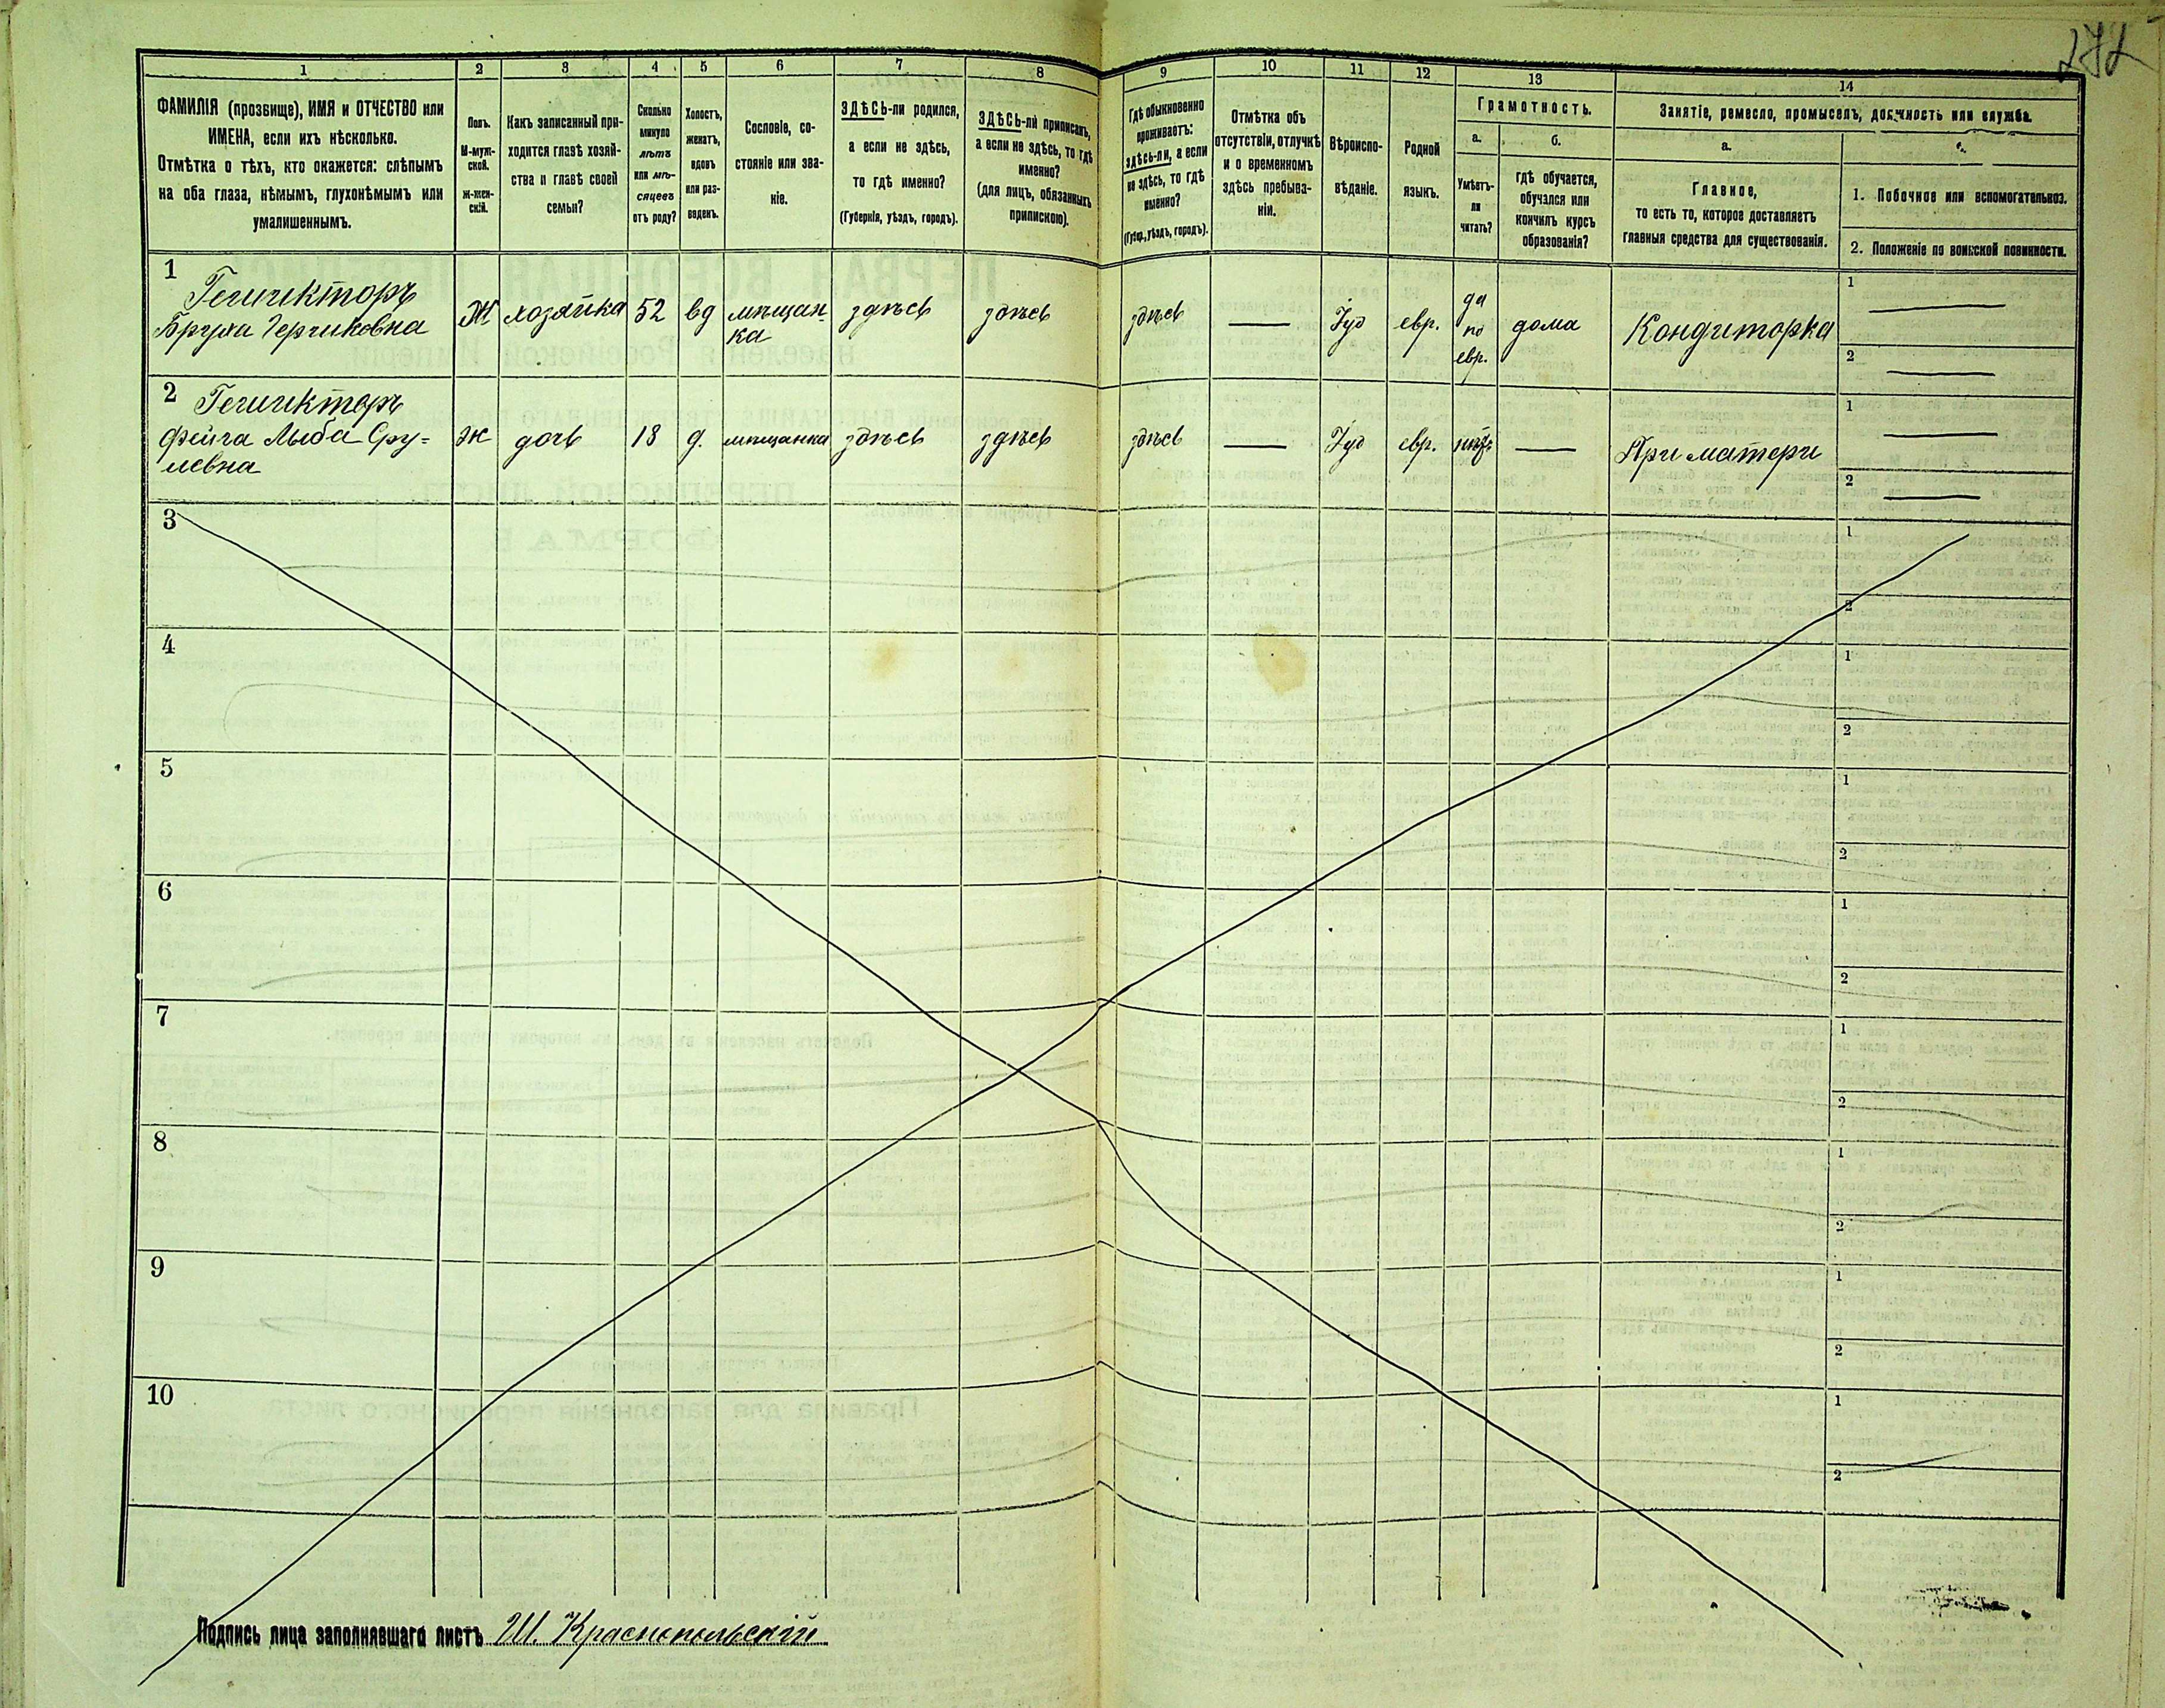 272
1 2 3 4 5 6 7 8 9 10 11 12 13 14
ФАМИЛІЯ (прозвище), ИМЯ и ОТЧЕСТВО или
ИМЕНА, если ихъ нѣсколько.
Отмѣтка о тѣхъ, кто окажется: слѣпымъ
на оба глаза, нѣмымъ, глухонѣмымъ или
умалишеннымъ.
Полъ.
М-муж-
ской.
Ж-жен-
скій.
Какъ записанный при-
ходится главѣ хозяй-
ства и главѣ своей
семьи?
Сколько
минуло
лѣтъ
или мѣ-
сяцевъ
отъ роду?
Холостъ,
женатъ,
вдовъ
или раз-
веденъ.
Сословіе, со-
стояніе или зва-
ніе.
ЗДѢСЬ-ли родился,
а если не здѣсь,
то гдѣ именно?
(Губернія, уѣздъ, городъ).
ЗДѢСЬ-ли приписанъ,
а если не здѣсь, то гдѣ
именно?
(для лицъ, обязанныхъ
припискою).
Гдѣ обыкновенно
проживаетъ:
здѣсь-ли, а если
не здѣсь, то гдѣ
именно?
(Губер., уѣздъ, городъ).
Отмѣтка объ
отсутствіи, отлучкѣ
и о временномъ
здѣсь пребыва-
ніи.
Вѣроиспо-
вѣданіе.
Родной
языкъ.
Грамотность.
а.
Умѣетъ-
ли
читать?
б.
гдѣ обучается,
обучался или
кончилъ курсъ
образованія?
Занятіе, ремесло, промыселъ, должность или служба.
а.
Главное,
то есть то, которое доставляетъ
главныя средства для существованія.
1. Побочное или вспомогательное.
2. Положеніе по воинской повинности.
1
Бруха Герчиковна
Ж хозяйка 52 вд мѣщан-
ка
здѣсь здѣсь здѣсь — Іуд евр.
да
по
евр.
дома Кондиторка
1 —
2 —
2
Фейга Лыба Сру-
левна
ж дочь 18 д. мѣщанка здѣсь здѣсь здѣсь — Іуд евр. нѣтъ — При матери
1 —
2 —
3
1
2
4
1
2
5
1
2
6
1
2
7
1
2
8
1
2
9
1
2
10
1
2
Подпись лица заполнявшаго листъ Ш. Краснопольскій